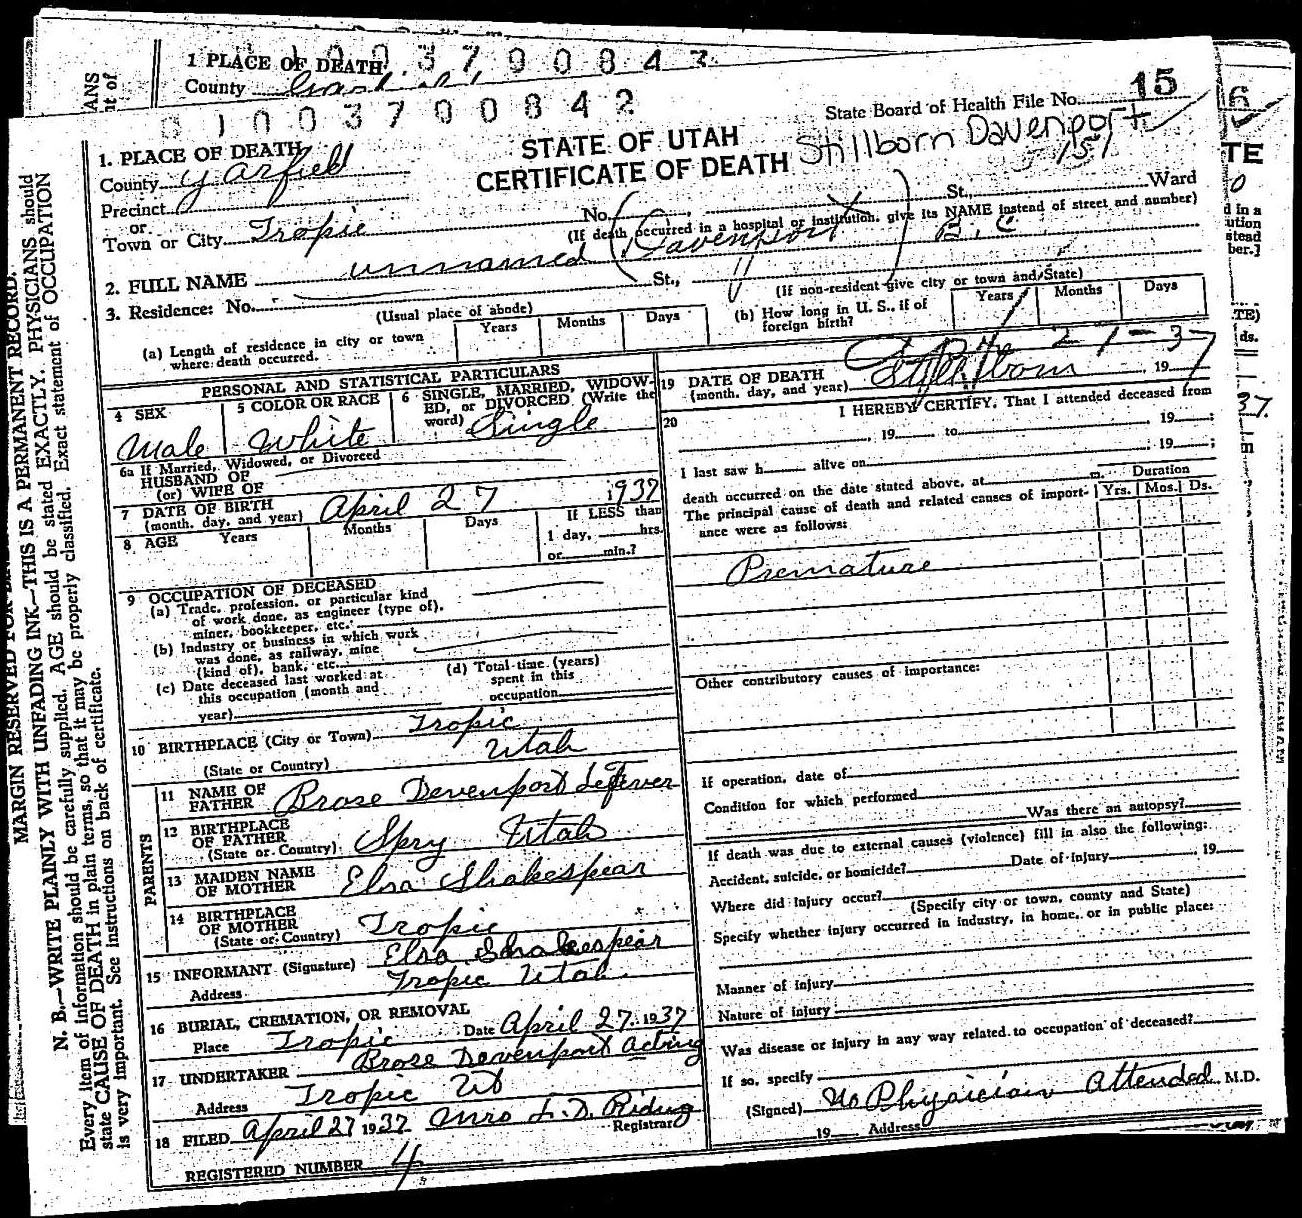 1 PLACE OF DEATH
County
1003700843
ANS
nt of
01003700842
State Board of Health File No. 15
STATE OF UTAH
CERTIFICATE OF DEATH
Stillborn Davenport
1. PLACE OF DEATH
County Garfield
Precinct
or
Town or City Tropic
No. St. Ward
(If death occurred in a hospital or institution, give its NAME instead of street and number)
2. FULL NAME unnamed (Davenport)
3. Residence: No. St.,
(Usual place of abode)
(If non-resident give city or town and State)
(a) Length of residence in city or town where death occurred.
Years Months Days
(b) How long in U. S., if of foreign birth?
Years Months Days
PERSONAL AND STATISTICAL PARTICULARS
4 SEX
Male
5 COLOR OR RACE
White
6 SINGLE, MARRIED, WIDOW-
ED, or DIVORCED (Write the
word) Single
6a If Married, Widowed, or Divorced
HUSBAND OF
(or) WIFE OF
7 DATE OF BIRTH
(month, day, and year) April 27 1937
8 AGE Years Months Days
If LESS than
1 day, hrs.
or min.?
9 OCCUPATION OF DECEASED
(a) Trade, profession, or particular kind
of work done, as engineer (type of),
miner, bookkeeper, etc.
(b) Industry or business in which work
was done, as railway, mine
(kind of), bank, etc.
(c) Date deceased last worked at
this occupation (month and
year)
(d) Total time (years)
spent in this
occupation
10 BIRTHPLACE (City or Town) Tropic
(State or Country) Utah
PARENTS
11 NAME OF
FATHER Brose Devenport LeFever
12 BIRTHPLACE
OF FATHER
(State or Country) Spry Utah
13 MAIDEN NAME
OF MOTHER Elsa Shakespear
14 BIRTHPLACE
OF MOTHER
(State or Country) Tropic
15 INFORMANT (Signature) Elsa Shakespear
Address Tropic Utah
16 BURIAL, CREMATION, OR REMOVAL
Place Tropic Date April 27, 1937
17 UNDERTAKER Brose Devenport Acting
Address Tropic Ut
18 FILED April 27 1937 Mrs L. D. Riding
Registrar
REGISTERED NUMBER 4
19 DATE OF DEATH
(month, day, and year) Stillborn 4-27-37 19
20 I HEREBY CERTIFY, That I attended deceased from
, 19 to , 19 ;
I last saw h alive on , 19 ;
death occurred on the date stated above, at m.
The principal cause of death and related causes of import-
ance were as follows:
Duration
Yrs. Mos. Ds.
Premature
Other contributory causes of importance:
If operation, date of
Condition for which performed
Was there an autopsy?
If death was due to external causes (violence) fill in also the following:
Accident, suicide, or homicide? Date of injury , 19
Where did injury occur?
(Specify city or town, county and State)
Specify whether injury occurred in industry, in home, or in public place:
Manner of injury
Nature of injury
Was disease or injury in any way related to occupation of deceased?
If so, specify
(Signed) No Physician Attended M.D.
19 Address
MARGIN RESERVED FOR
N. B.—WRITE PLAINLY WITH UNFADING INK—THIS IS A PERMANENT RECORD.
Every item of information should be carefully supplied. AGE should be stated EXACTLY. PHYSICIANS should
state CAUSE OF DEATH in plain terms, so that it may be properly classified. Exact statement of OCCUPATION
is very important. See instructions on back of certificate.
6
TE
d in a
ution
stead
ber.]
TE)
ds.
37
m